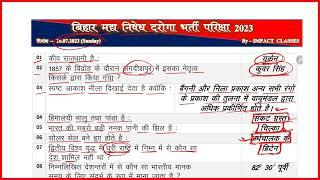 बिहार मद्य निषेध दरोगा भर्ती परिक्षा 2023
दिनांक – 16.07.2023 (Sunday)
By – IMPACT CLASSES
01 कीव राजधानी है : यूक्रेन
02 1857 के विद्रोह के दौरान जगदीशपुर में इसका नेतृत्व किसके द्वारा किया गया? कुंवर सिंह
03 स्पष्ट आकाश नीला दिखाई देता है क्योंकि : बैंगनी और नीला प्रकाश अन्य सभी रंगों के प्रकाश की तुलना में वायुमंडल द्वारा अधिक प्रकीर्णित होते है।
04 हिमालयी भालू तथा पांडा है : संकट ग्रस्त
05 भारत की सबसे बड़ी नमक पानी की झिल है : चिल्का
06 सोलर सेल बने हुए होते है : अर्धचालक के
07 द्वितीय विश्व युद्ध में धुरी राष्ट्रों में निम्न में से कौन सा देश शामिल नहीं था? ब्रिटेन
08 निम्नलिखित देशान्तरों में से कौन सा भारतीय मानक समय के लिए संदर्भ के रूप में माना जाता है? 82° 30' पूर्वी